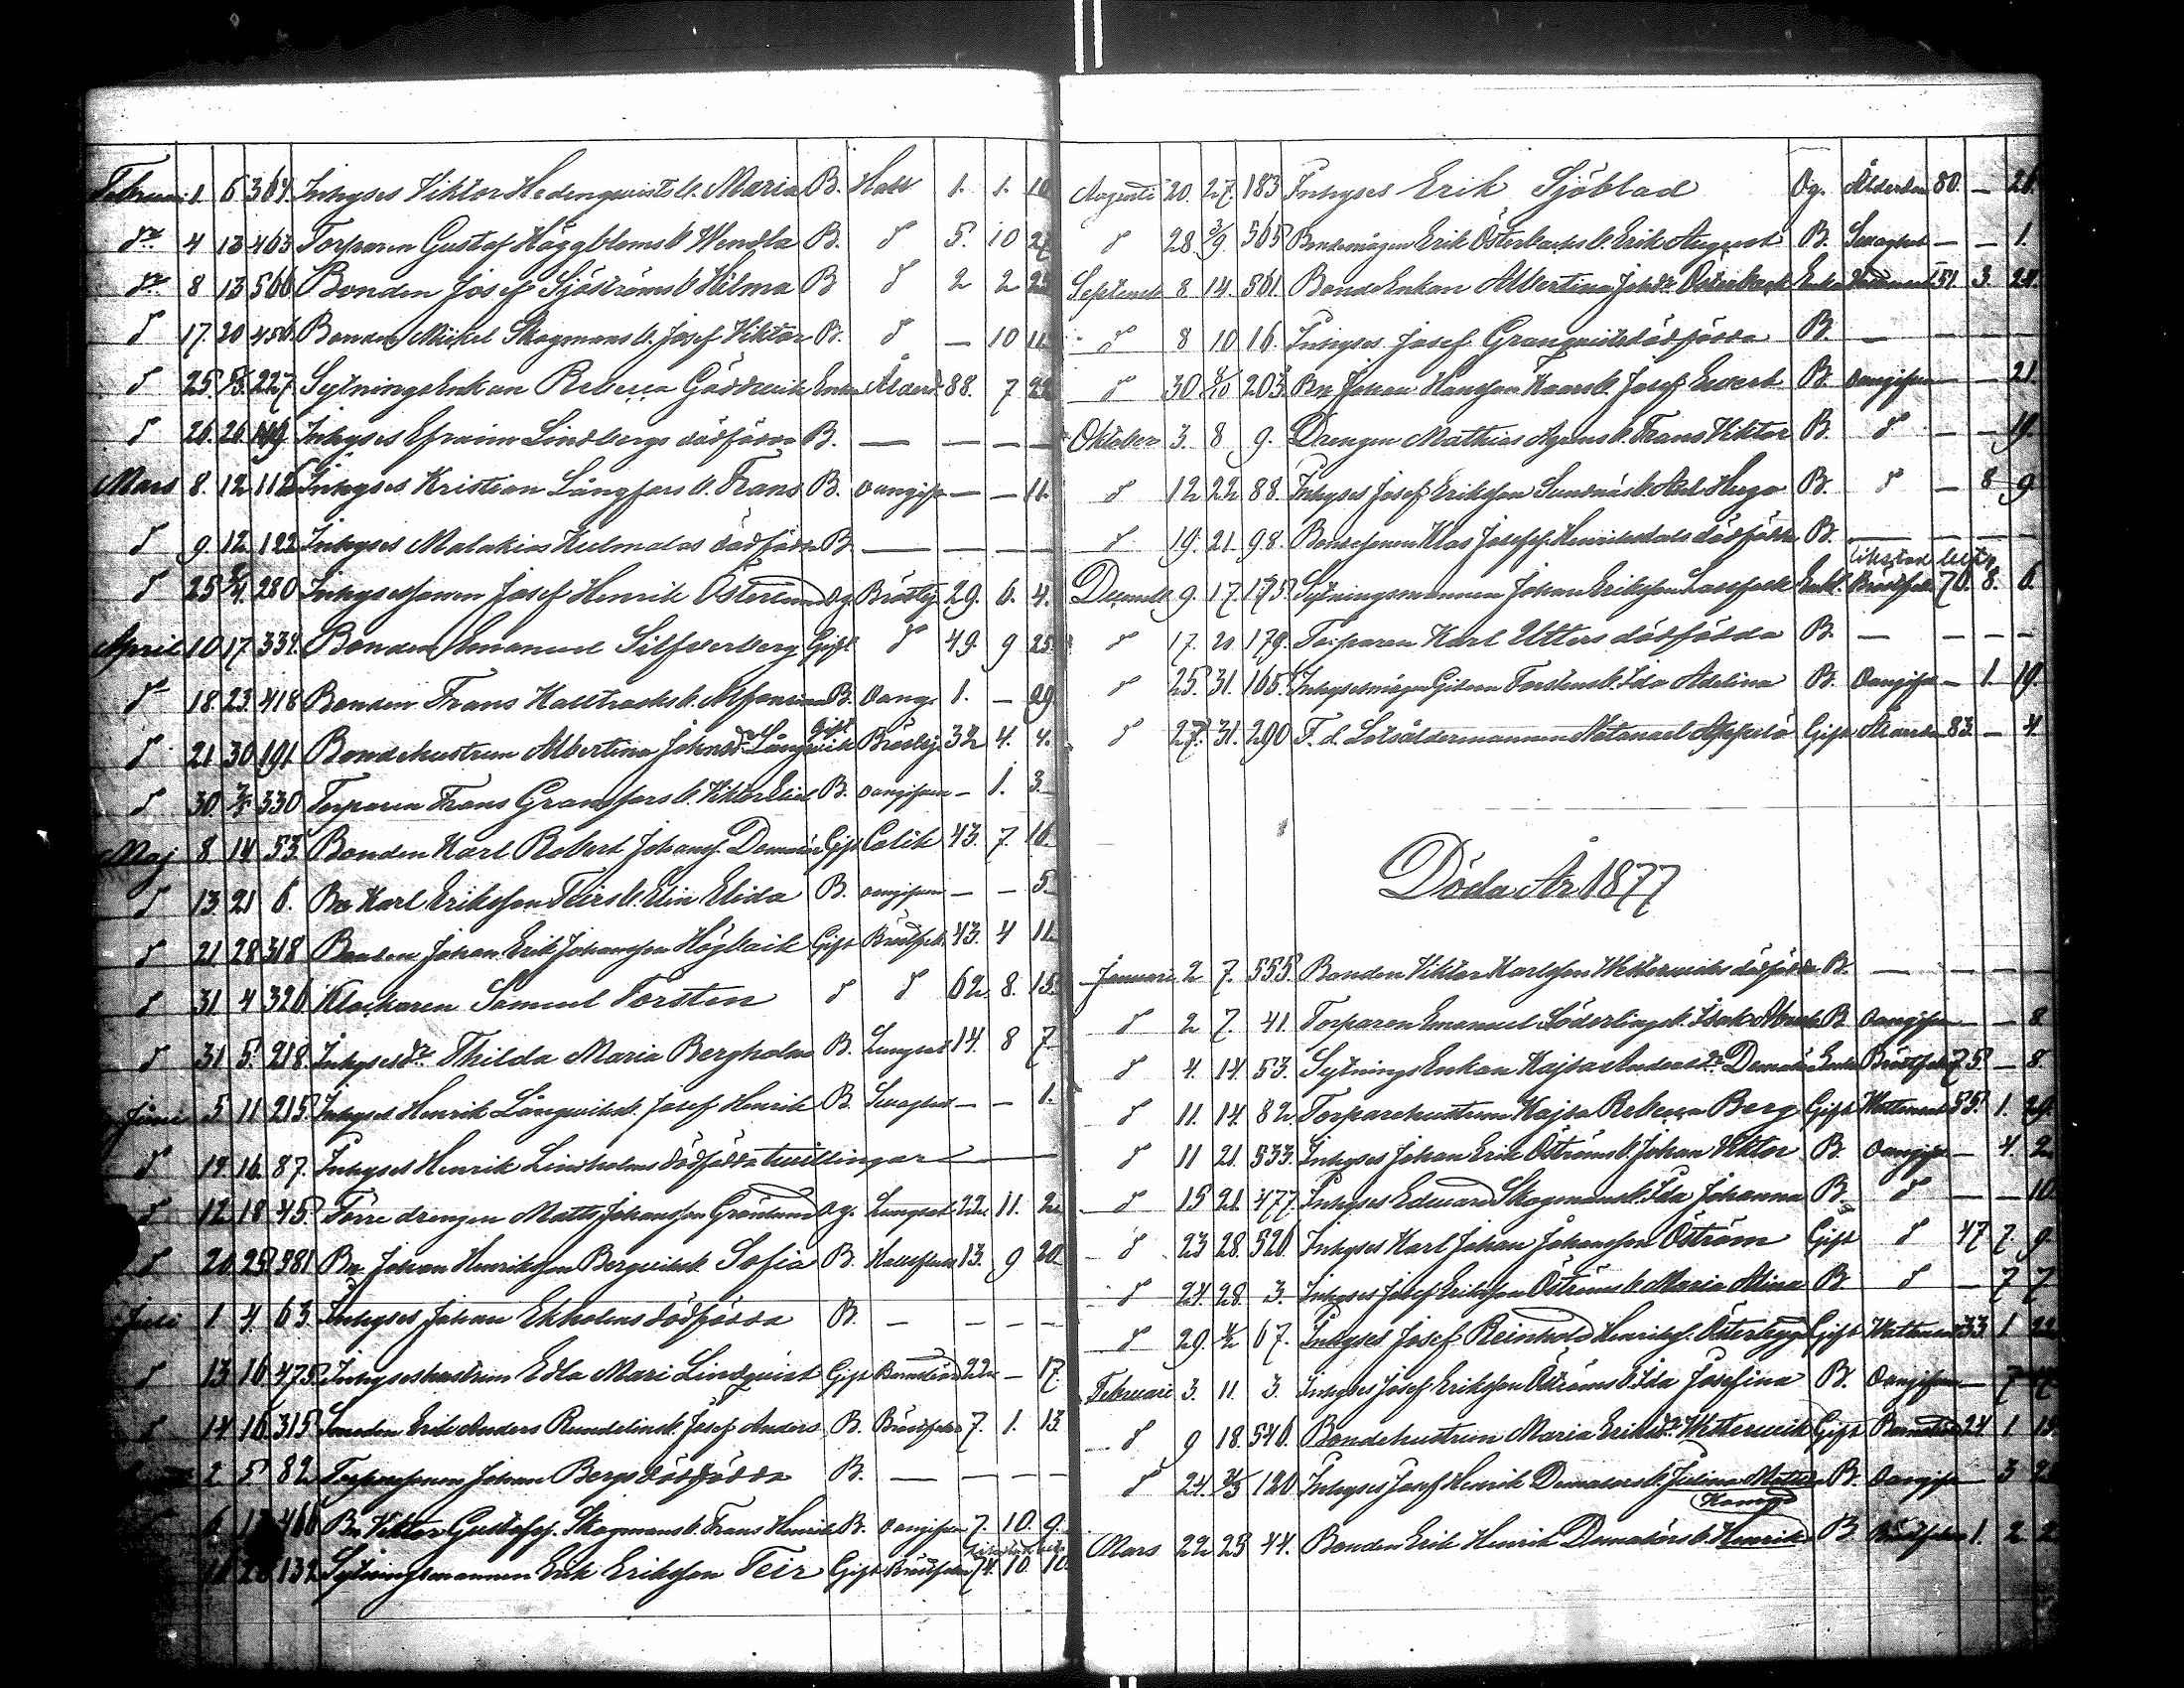 Februari 1. 6 364. Inhyses Viktor Hedenquists b. Maria B. Hall 1. 1. 10
do 4 13 463 Torparen Gustaf Häggbloms b. Wendla B. d 5. 10 27
do 8 13 566 Bonden Josef Sjöströms b. Hilma B d 2 2 25
d 17. 20 456. Bonden Mickel Skogmans b. Josef Viktor B. d — 10 11.
d 25. 5/3 227 Sytningsenkan Rebecca Gäddnick Enka Ålderd. 88. 7 22
d 26. 26 149. Inhyses Efraim Lindbergs dödfödda B. — — — —
Mars 8. 12 112 Inhyses Kristian Långfors b. Frans B. oangifn — — 11.
d 9 12 122 Inhyses Malakias Kulmalas dödfödda B — — — —
d 25 2/4 280 Inhysessonen Josef Henrik Österlund Og. Bröstsj 29. 6. 4.
April 10 17 334. Bonden Emanuel Silfverberg Gift d 49. 9 25
do 18. 23. 418 Bonden Frans Kalltracks b. Alfonsina B. oang. 1. — 29
d 21 30 191 Bondehustrun Albertina Johansdr Långquick Gift Bröstsj 32 4. 4.
d 30. 7/5 330 Torparen Frans Gransfors b. Viktor Emil B. oangifven — 1. 3
Maj 8 14 53. Bonden Karl Robert Johansf. Domars Gift Colik 43. 7. 10.
d 13. 21 6. Bn Karl Eriksson Teirs b. Elin Elida B. oangifven — — 5.
d 21. 28 318 Bonden Johan Erik Johansson Högback Gift Bröstfeb. 43. 4 11.
d 31 4 326 Klockaren Samuel Torsten d d 62. 8. 15.
d 31 5. 218. Inhysesdr Thilda Maria Bergholm B. Lungsot 14. 8 7
Juni 5. 11 215 Inhyses Henrik Långquicks b. Josef Henrik B. Svaghet — — 1.
d 12. 16. 87. Inhyses Henrik Lindholms dödfödda twillingar
d 12 18 45. Torredrengen Matts Johansson Grönlund Og. Lungsot 22. 11. 2
d 20 25 381 Bn Johan Henriksson Bergvicks b. Sofia B. Kallfeber 13. 9 20.
Juli 1 4. 63. Inhyses Johan Ekholms dödfödda B. — — — —
d 13 16 475. Inhyseshustrun Edla Mari Lindquist Gift Barnsäng 22 — 17
d 14 16 315 Smeden Erik Anders Rundelins b. Josef Anders B. Bröstfeber 7. 1. 13
2 5 82 Torparesonen Johan Bergs dödfödda B. — — — —
6. 466 Bn Viktor Gustafsf. Skogmans b. Frans Henrik B. oangifven 7. 10. 9.
132 Sytningsmannen Erik Eriksson Teir Gift Bröstfeber 74. 10. 10.
Augusti 20. 27. 183 Inhyses Erik Sjöblad Og. Ålderdom 80. — 26.
d 28. 3/9. 565 Bondemågen Erik Österbacks b. Erik August B. Svaghet — — 1.
Septemb 8 14. 561. Bonde Enkan Albertina Johsdr Österback Enka Wattensot 51. 3. 24.
d 8 10 16. Inhyses Josef Granquists dödfödda B. — — — —
d 30 8/10 203. Bn Johan Hansson Kaars b. Josef Evert B. oangifven — — 21.
Oktober 3. 8 9. Drengen Mathias Agens b. Frans Viktor B. d — — 19.
d 12 22 88. Inhyses Josef Eriksson Sundnäs b. Axel Hugo B. d — 8 9
d 19. 21 98. Bondesonen Klas Josefsf. Henriksdals dödfödda B. — — — —
Decemb 9. 17. 175. Sytningsmannen Johan Eriksson Lassfolk Enkl. Bröstfeber 76. 8. 6.
d 17. 20 179. Torparen Karl Utters dödfödda B. — — — —
d 25. 31. 165. Inhysesmågen Gideon Torstens b. Ida Adelina B. Oangifvet — 1. 19.
d 27. 31. 290 F. d. Lotsåldermannen Natanael Appelö Gift Ålderdom 83. — 4
Döda År 1877
Januari 2 7. 555. Bonden Viktor Karlsson Westerviks dödfödda B. — — — —
d 2 7. 41. Torparen Emanuel Söderlings b. Isak B. Oangifven — — 8.
d 4. 14. 53. Sytnings Enkan Kajsa Andersdr Domars Enka Bröstfeber 75. — 8.
d 11. 14. 82. Torparehustrun Kajsa Rebecca Berg Gift Wattensot 55. 1. 29.
d 11 21. 533. Inhyses Johan Erik Öströms b. Johan Viktor B. Oangifvet — 4 2
d 15 21. 477. Inhyses Edward Skogmans b. Ida Johanna B. d — — 10.
d 23 28. 520. Inhyses Karl Johan Johansson Öström Gift d 47 7 9
d 24. 28. 3. Inhyses Josef Eriksson Öströms b. Maria Alina B. d — 7 7
d 29. 4/2 67. Inhyses Josef Reinhold Henriksf. Österlygd Gift Wattensot 33. 1 22
Februari 3. 11. 3. Inhyses Josef Eriksson Öströms b. Ida Josefina B. Oangifven — 7 17
d 9 18. 540. Bondehustrun Maria Eriksdr Westervik Gift Barnsäng 24 1 15.
d 24. 3/3 120 Inhyses Josef Henrik Domars b. Julina B. Oangifvet — 3
Mars 22 25 44. Bonden Erik Henrik Domars b. Henrik B. Bröstfeber 1. 2 2